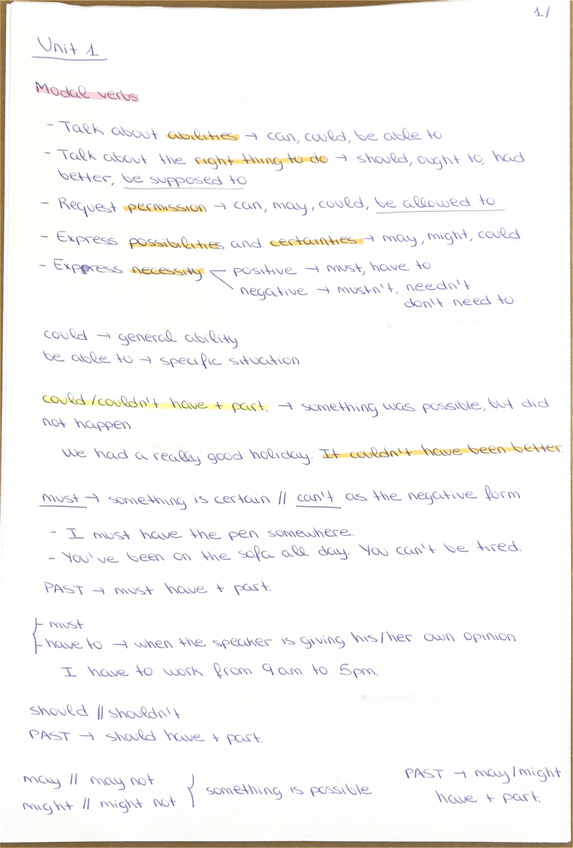 1/
Unit 1
Modal verbs
- Talk about abilities → can, could, be able to
- Talk about the right thing to do → should, ought to, had
better, be supposed to
- Request permission → can, may, could, be allowed to
- Express possibilities and certainties → may, might, could
- Express necessity positive → must, have to
negative → mustn't, needn't
don't need to
could → general ability
be able to → specific situation
could/couldn't have + part. → something was possible, but did
not happen
We had a really good holiday. It couldn't have been better.
must → something is certain // can't as the negative form
- I must have the pen somewhere.
- You've been on the sofa all day. You can't be tired.
PAST → must have + part.
- must
- have to → when the speaker is giving his/her own opinion
I have to work from 9am to 5pm.
should // shouldn't
PAST → should have + part.
may // may not
might // might not } something is possible
PAST → may/might
have + part.